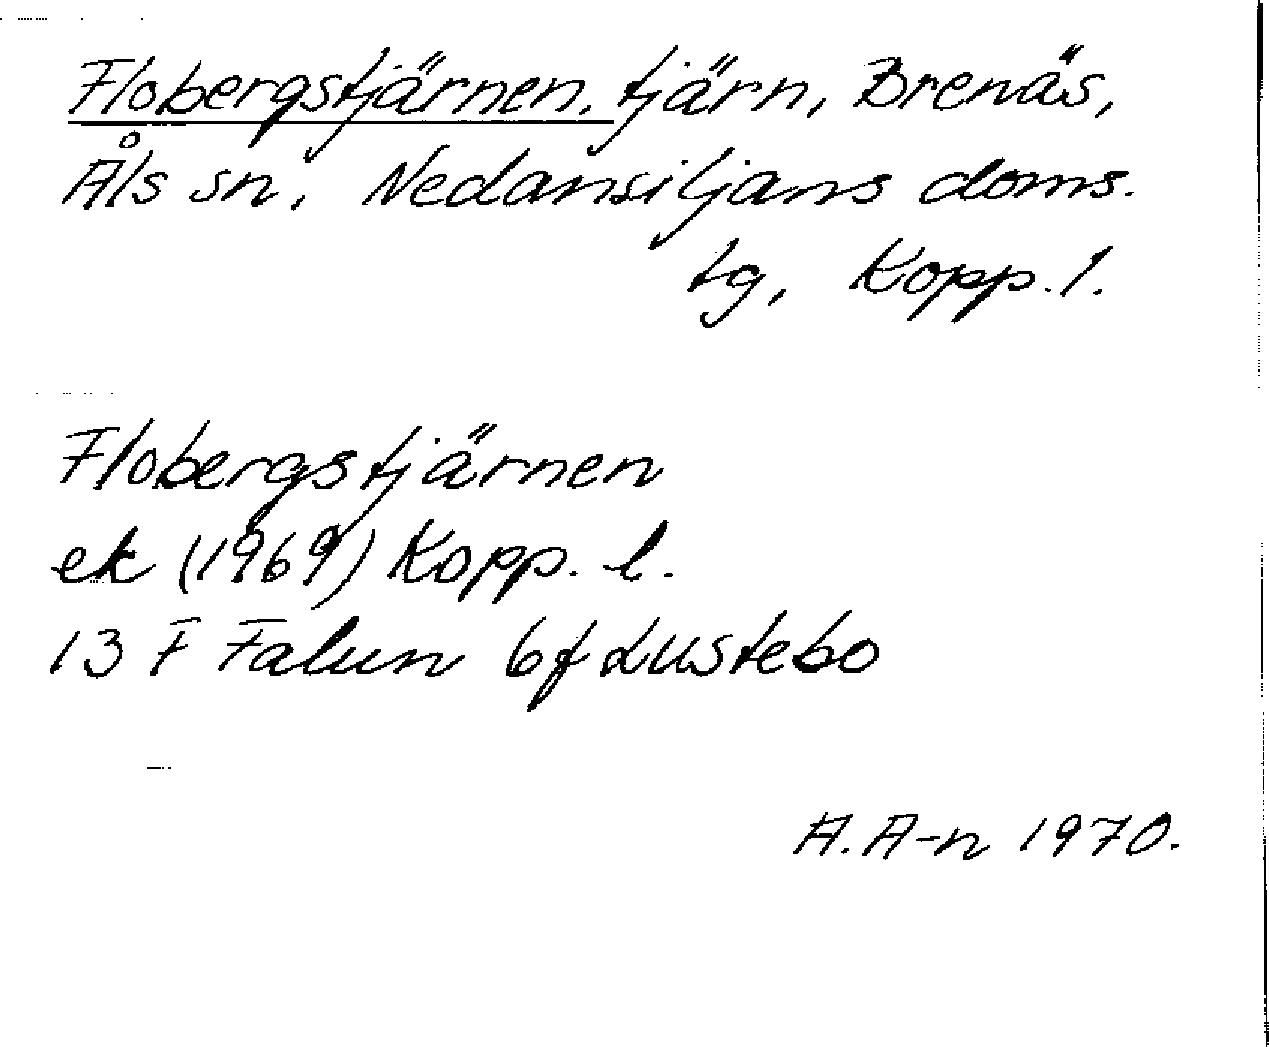 Flobergstjärnen, tjärn, Brenäs,
Åls sn, Nedansiljans doms.
tg, Kopp. l.
Flobergstjärnen
ek (1969) Kopp. l.
13 F Falun 6f Lustebo
A. A-n 1970.